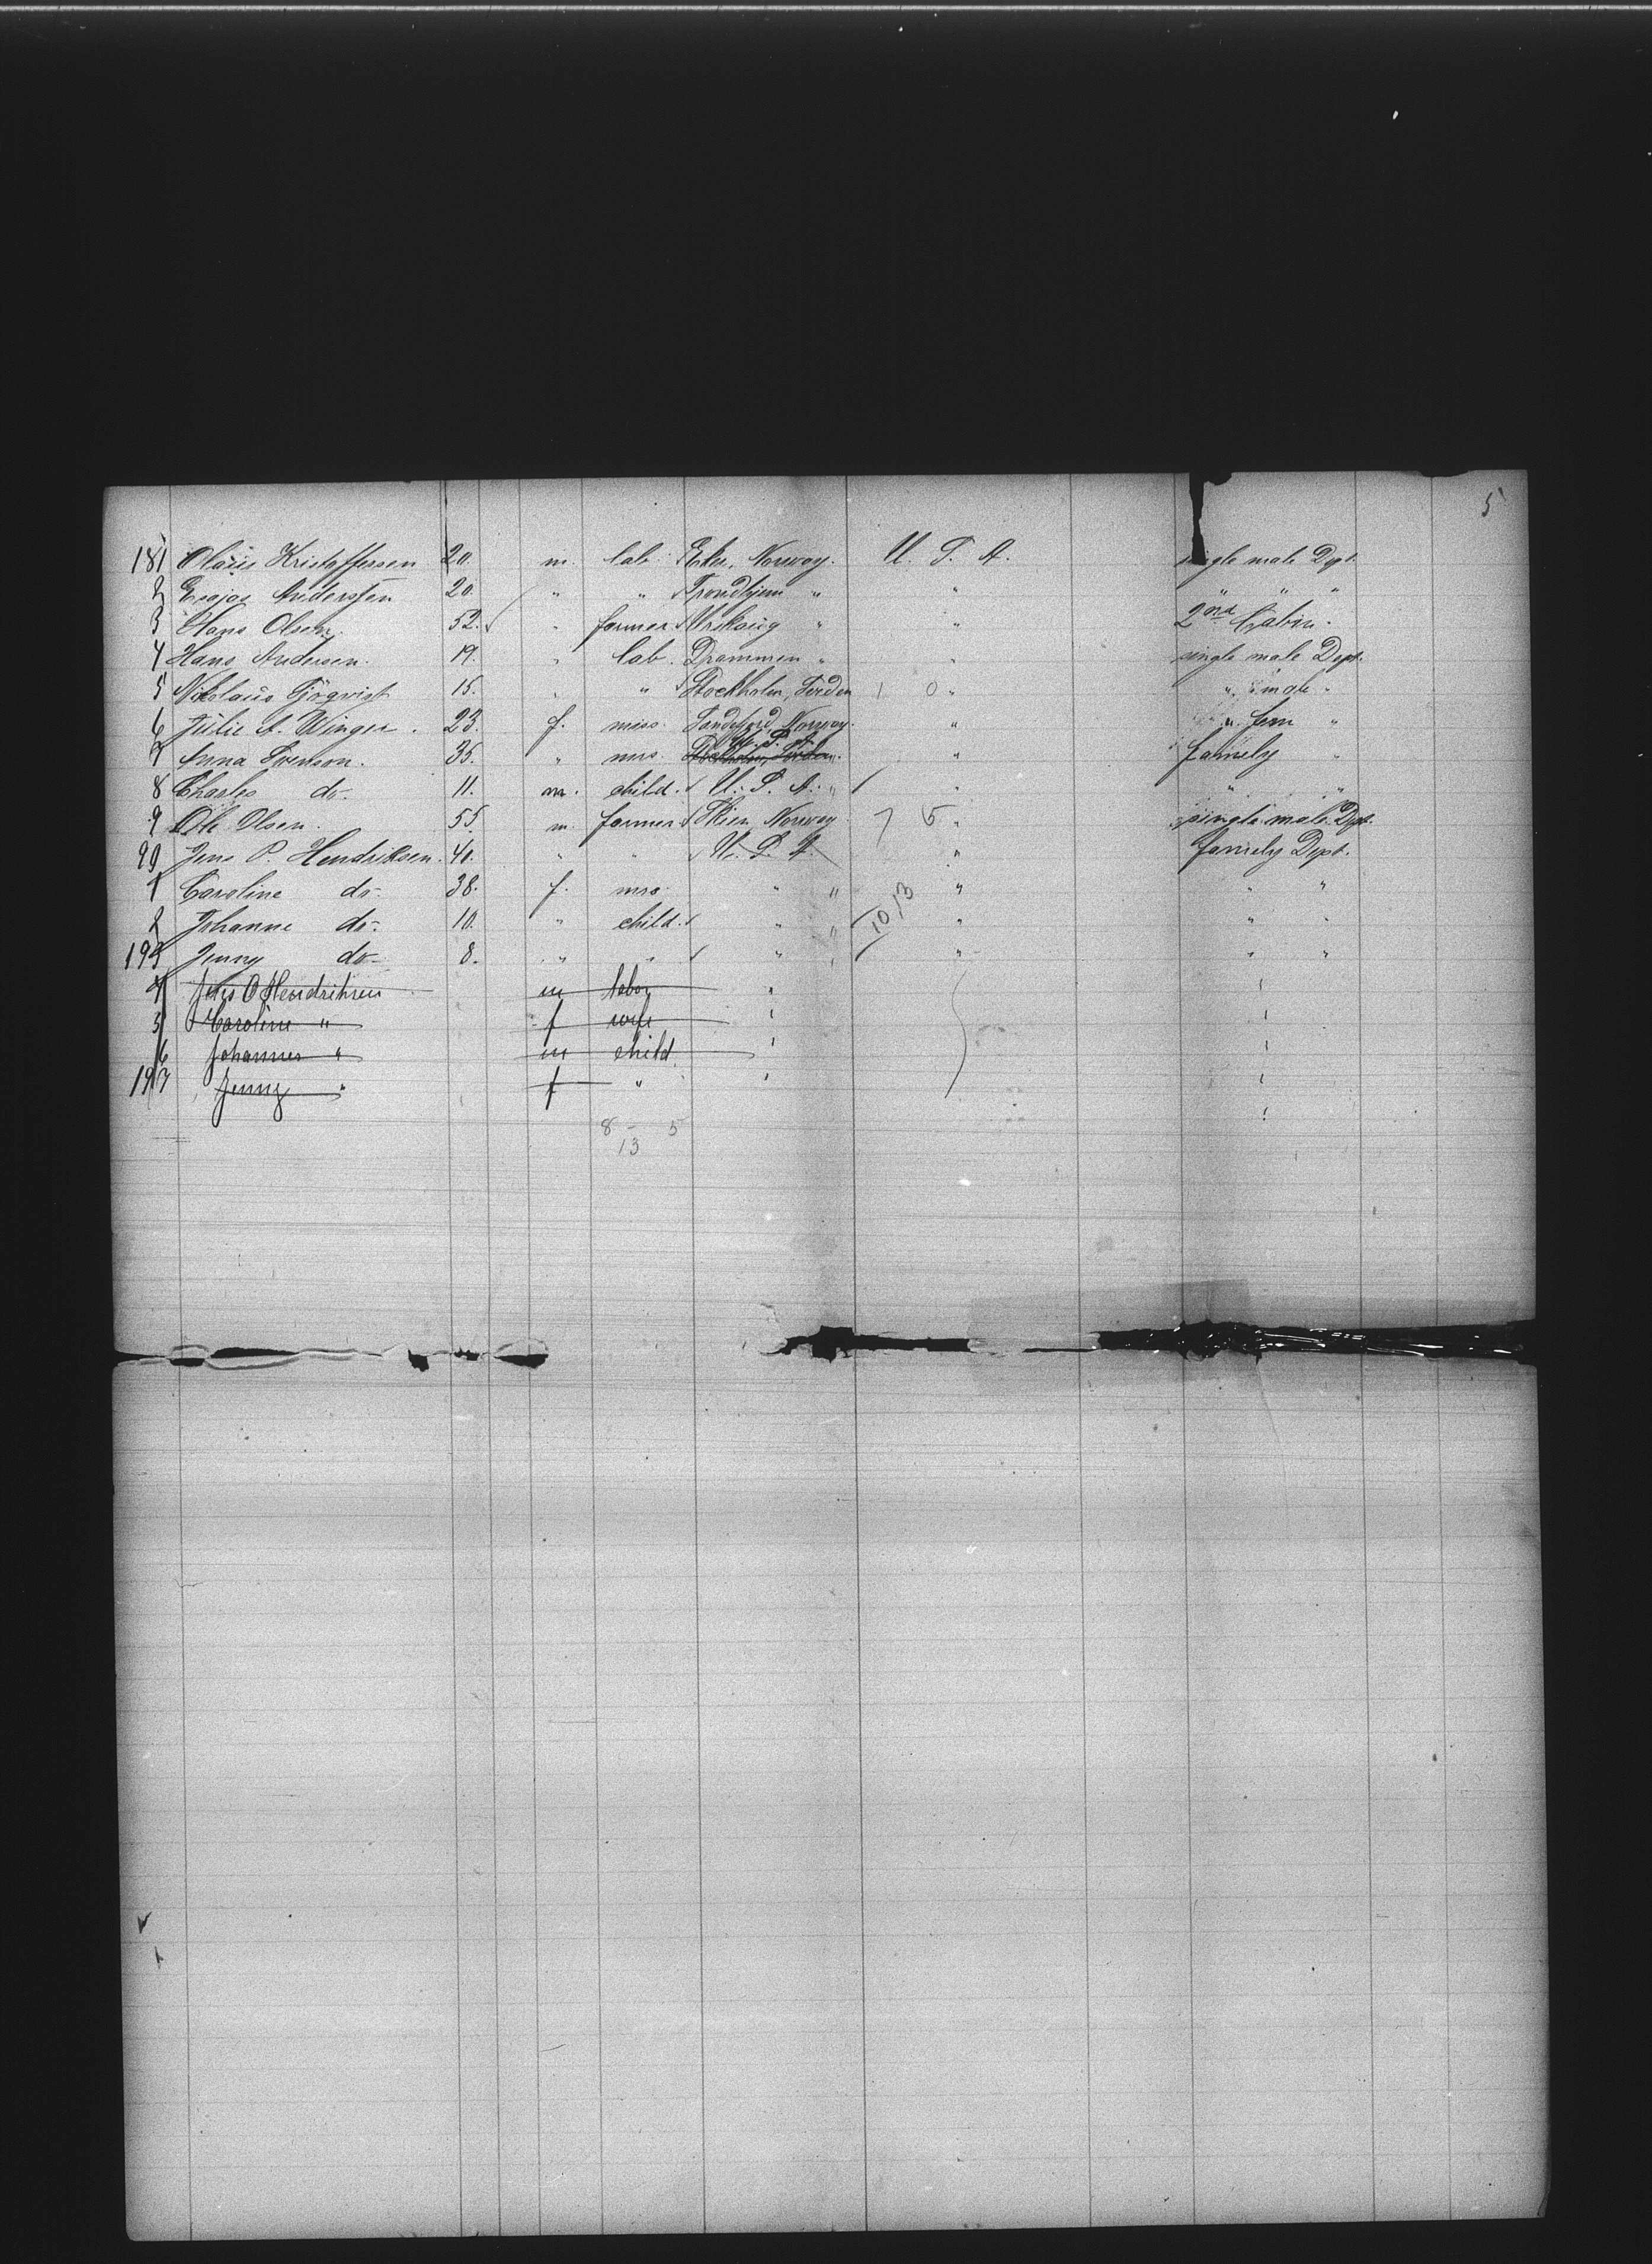 5
181 Olaüs Kristoffersen 20. m. lab. Eker, Norway. U. S. A. single male Dept.
2 Andersen 20. " " Trondhjem " " " " "
3 Hans Olsen. 52. " farmer " " 2nd Cabin.
4 Hans Andersen. 19. " lab. Drammen " " single male Dept.
5 Nikolaüs 15. " " Stockholm, 1 0 " " male "
6 Julie A. Winger. 23. f. miss. Norway. " " fem "
U. S. A.
7 Anna Svenson. 35. " mrs. Stockholm, " family "
8 Charles do. 11. m. child. U. S. A. " " " "
9 Ole Olsen. 55. m. farmer Skien Norway 7 5 " single male Dpt.
90 Jens P. Hendriksen. 40. " " U. S. A. " family Dept.
1 Caroline do. 38. f. mrs. " " " " "
2 Johanne do. 10. " child. " " 10/13 " " "
193 Jenny do. 8. " " " " " " "
4 Jens O Hendriksen m labor "
5 Caroline " f wife "
6 Johannes " m child "
197 Jenny " f " "
8 - 5
13